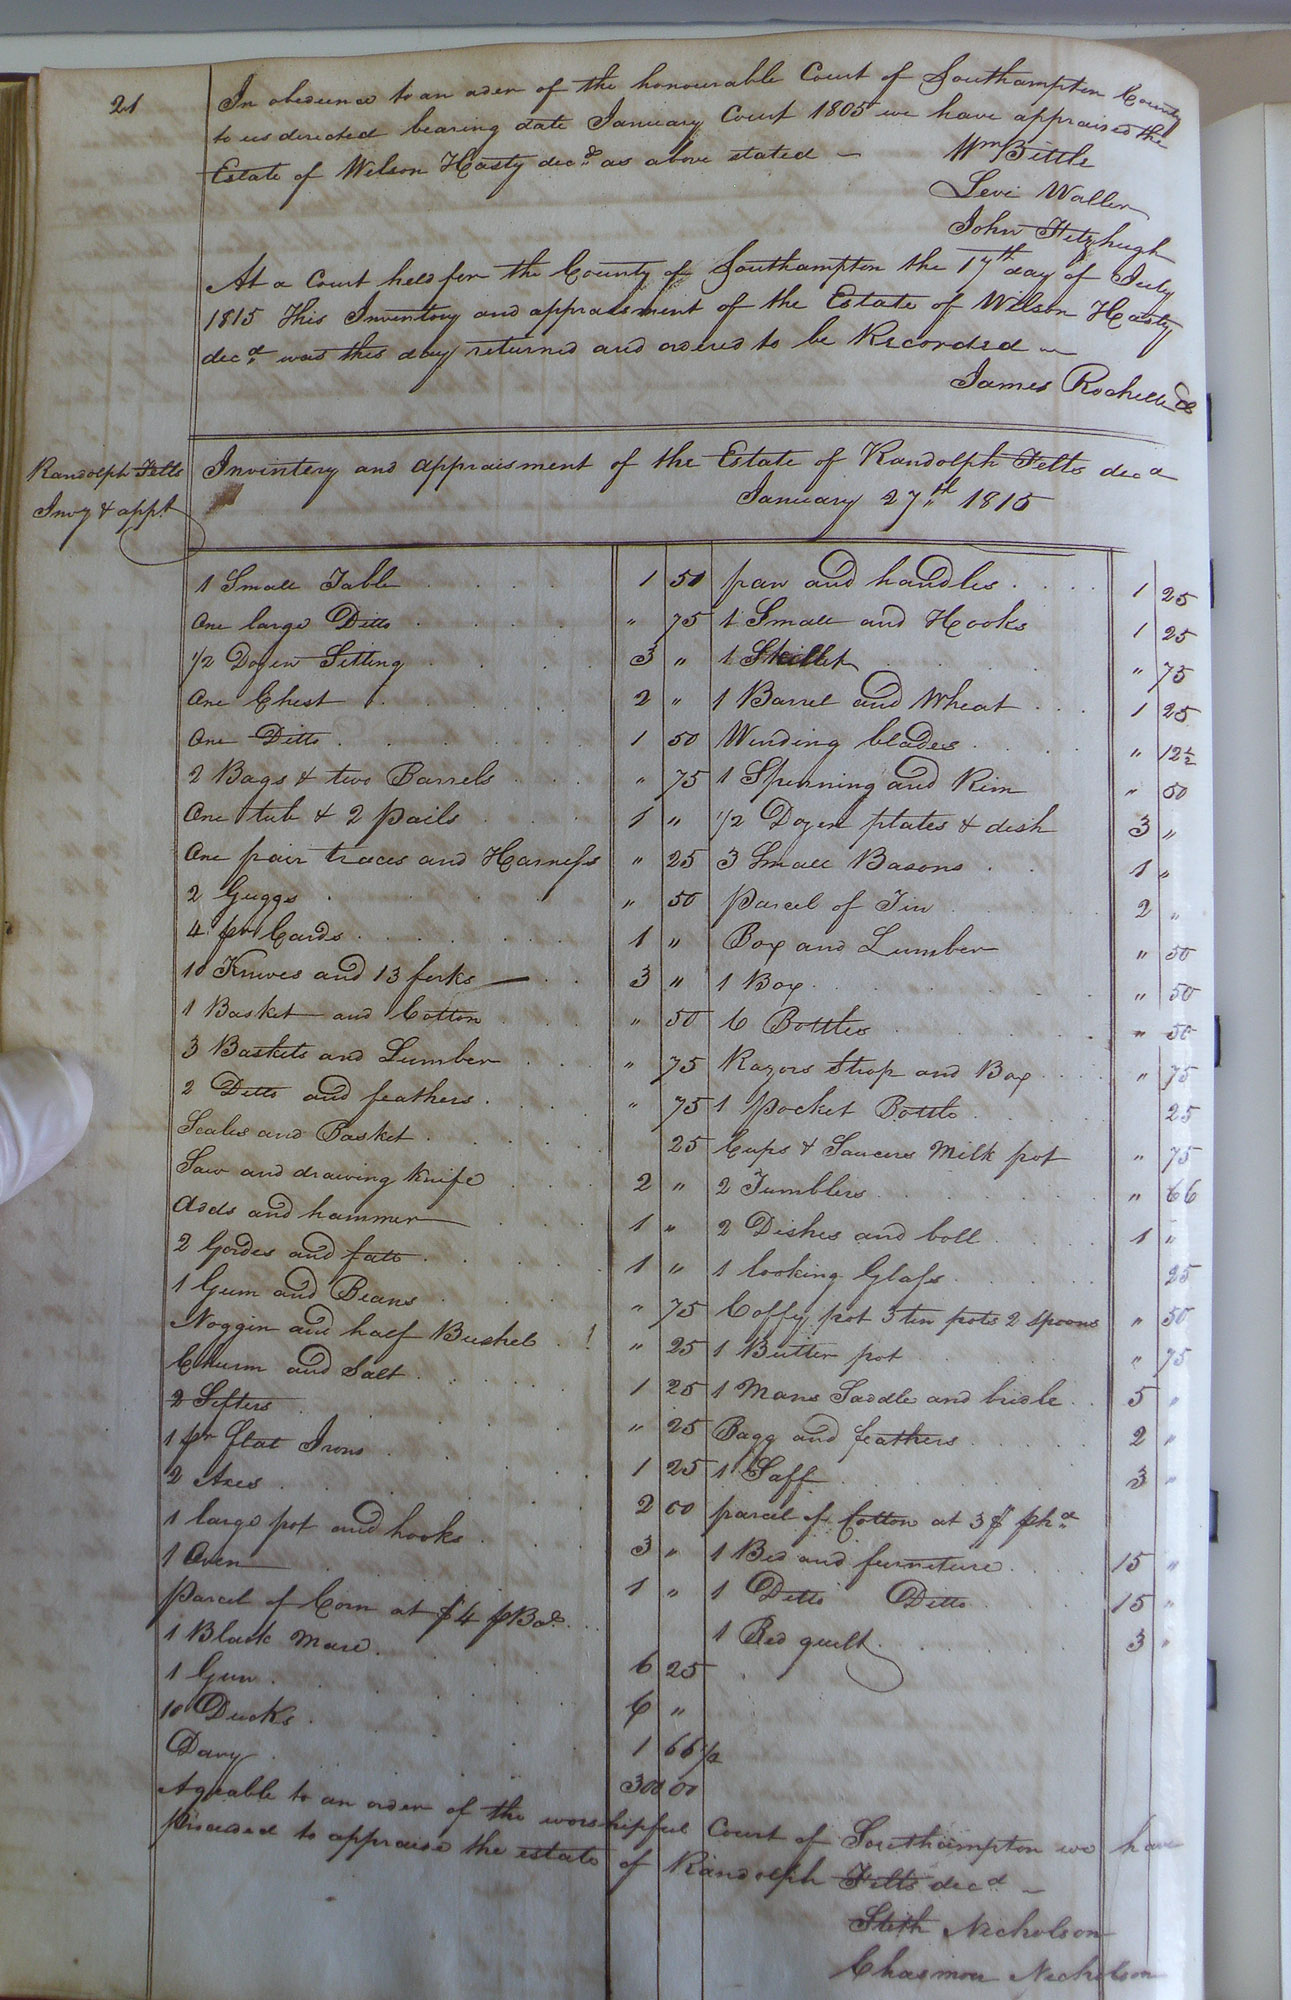 21
In obedience to an oder of the honourable Court of Southampton County
to us directed bearing date January Court 1805 we have appraised the
Estate of Wilson Hasty decd as above stated
Wm Bittle
Levi Waller
John Fitzhugh
At a Court held for the County of Southampton the 17th day of July
1815 This Inventory and appraisment of the Estate of Wilson Hasty
decd was this day returned and ordered to be Recorded
James Rochelle
Randolph Felts
Invy & appt
Inventory and appraisment of the Estate of Randolph Felts decd
January 27th 1815
1 Small Table 1 50
One large Ditto " 75
1/2 Dozen Setting 3 "
One Chest 2 "
One Ditto 1 50
2 Bags & two Barrels " 75
One tub & 2 pails 1 "
One pair traces and Harness " 25
2 Guggs " 50
4 pr Cards 1 "
10 Knives and 13 forks 3 "
1 Basket and Cotton " 50
3 Baskets and Lumber " 75
2 Ditto and feathers " 75
Scales and Basket 25
Saw and drawing knife 2 "
Adds and hammer 1 "
2 Gordes and fatt 1 "
1 Gum and Beans " 75
Noggin and half Bushel " 25
Churm and Salt 1 25
2 Sifters " 25
1 pr flat Irons 1 25
2 Axes 2 00
1 large pot and hooks 3 "
1 Oven 1 "
Parcel of Corn at $4 pBd
1 Black Mare 6 25
1 Gun 6 "
10 Ducks 1 66 1/2
Davy 300 00
pan and handles 1 25
1 Small and Hooks 1 25
1 Skillet " 75
1 Barrel and Wheat 1 25
Winding blades " 12 1/2
1 Spinning and Rim " 50
1/2 Dozen plates & dish 3 "
3 Small Basons 1 "
Parcel of Tin 2 "
Box and Lumber " 50
1 Box " 50
6 Bottles " 50
Razors Strop and Box " 75
1 Pocket Bottle 25
Cups & Saucers Milk pot " 75
2 Tumblers " 66
2 Dishes and boll 1 "
1 looking Glass 25
Coffy pot 3 tin pots 2 spoons " 50
1 Butter pot " 75
1 Mans Saddle and bridle 5 "
Bagg and feathers 2 "
1 Saff 3 "
parcel of Cotton at 3$ phd
1 Bed and furneture 15 "
1 Ditto Ditto 15 "
1 Bed quilt 3 "
Agreable to an order of the worshipful Court of Southampton we have
Proceded to appraise the estate of Randolph Felts decd
Stith Nicholson
Nicholson